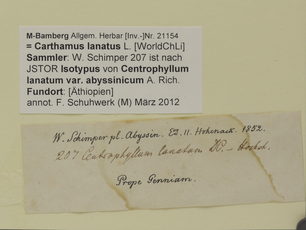 M-Bamberg Allgem. Herbar [Inv.-]Nr. 21154
= Carthamus lanatus L. [WorldChLi]
Sammler: W. Schimper 207 ist nach
JSTOR Isotypus von Centrophyllum
lanatum var. abyssinicum A. Rich.
Fundort: [Äthiopien]
annot. F. Schuhwerk (M) März 2012
W. Schimper pl. Abyssin. Ed. II. Hohenack. 1852.
207 Centrophyllum lanatum DC. – Hochst.
Prope Genniam.